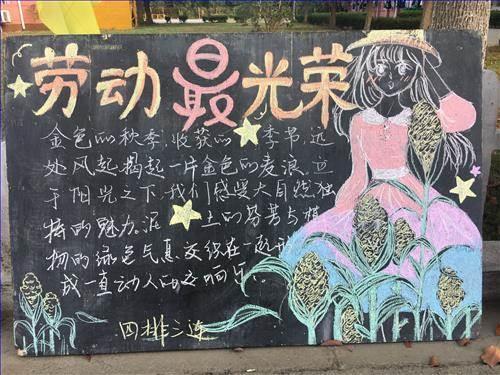 劳动最光荣
金色的秋季,收获的季节,远
处风起掀起一片金色的麦浪.立
于阳光之下,我们感受大自然独
特的魅力.泥土的芬芳与植
物的绿色气息交织在一起形
成一直动人的交响乐。
四排三连